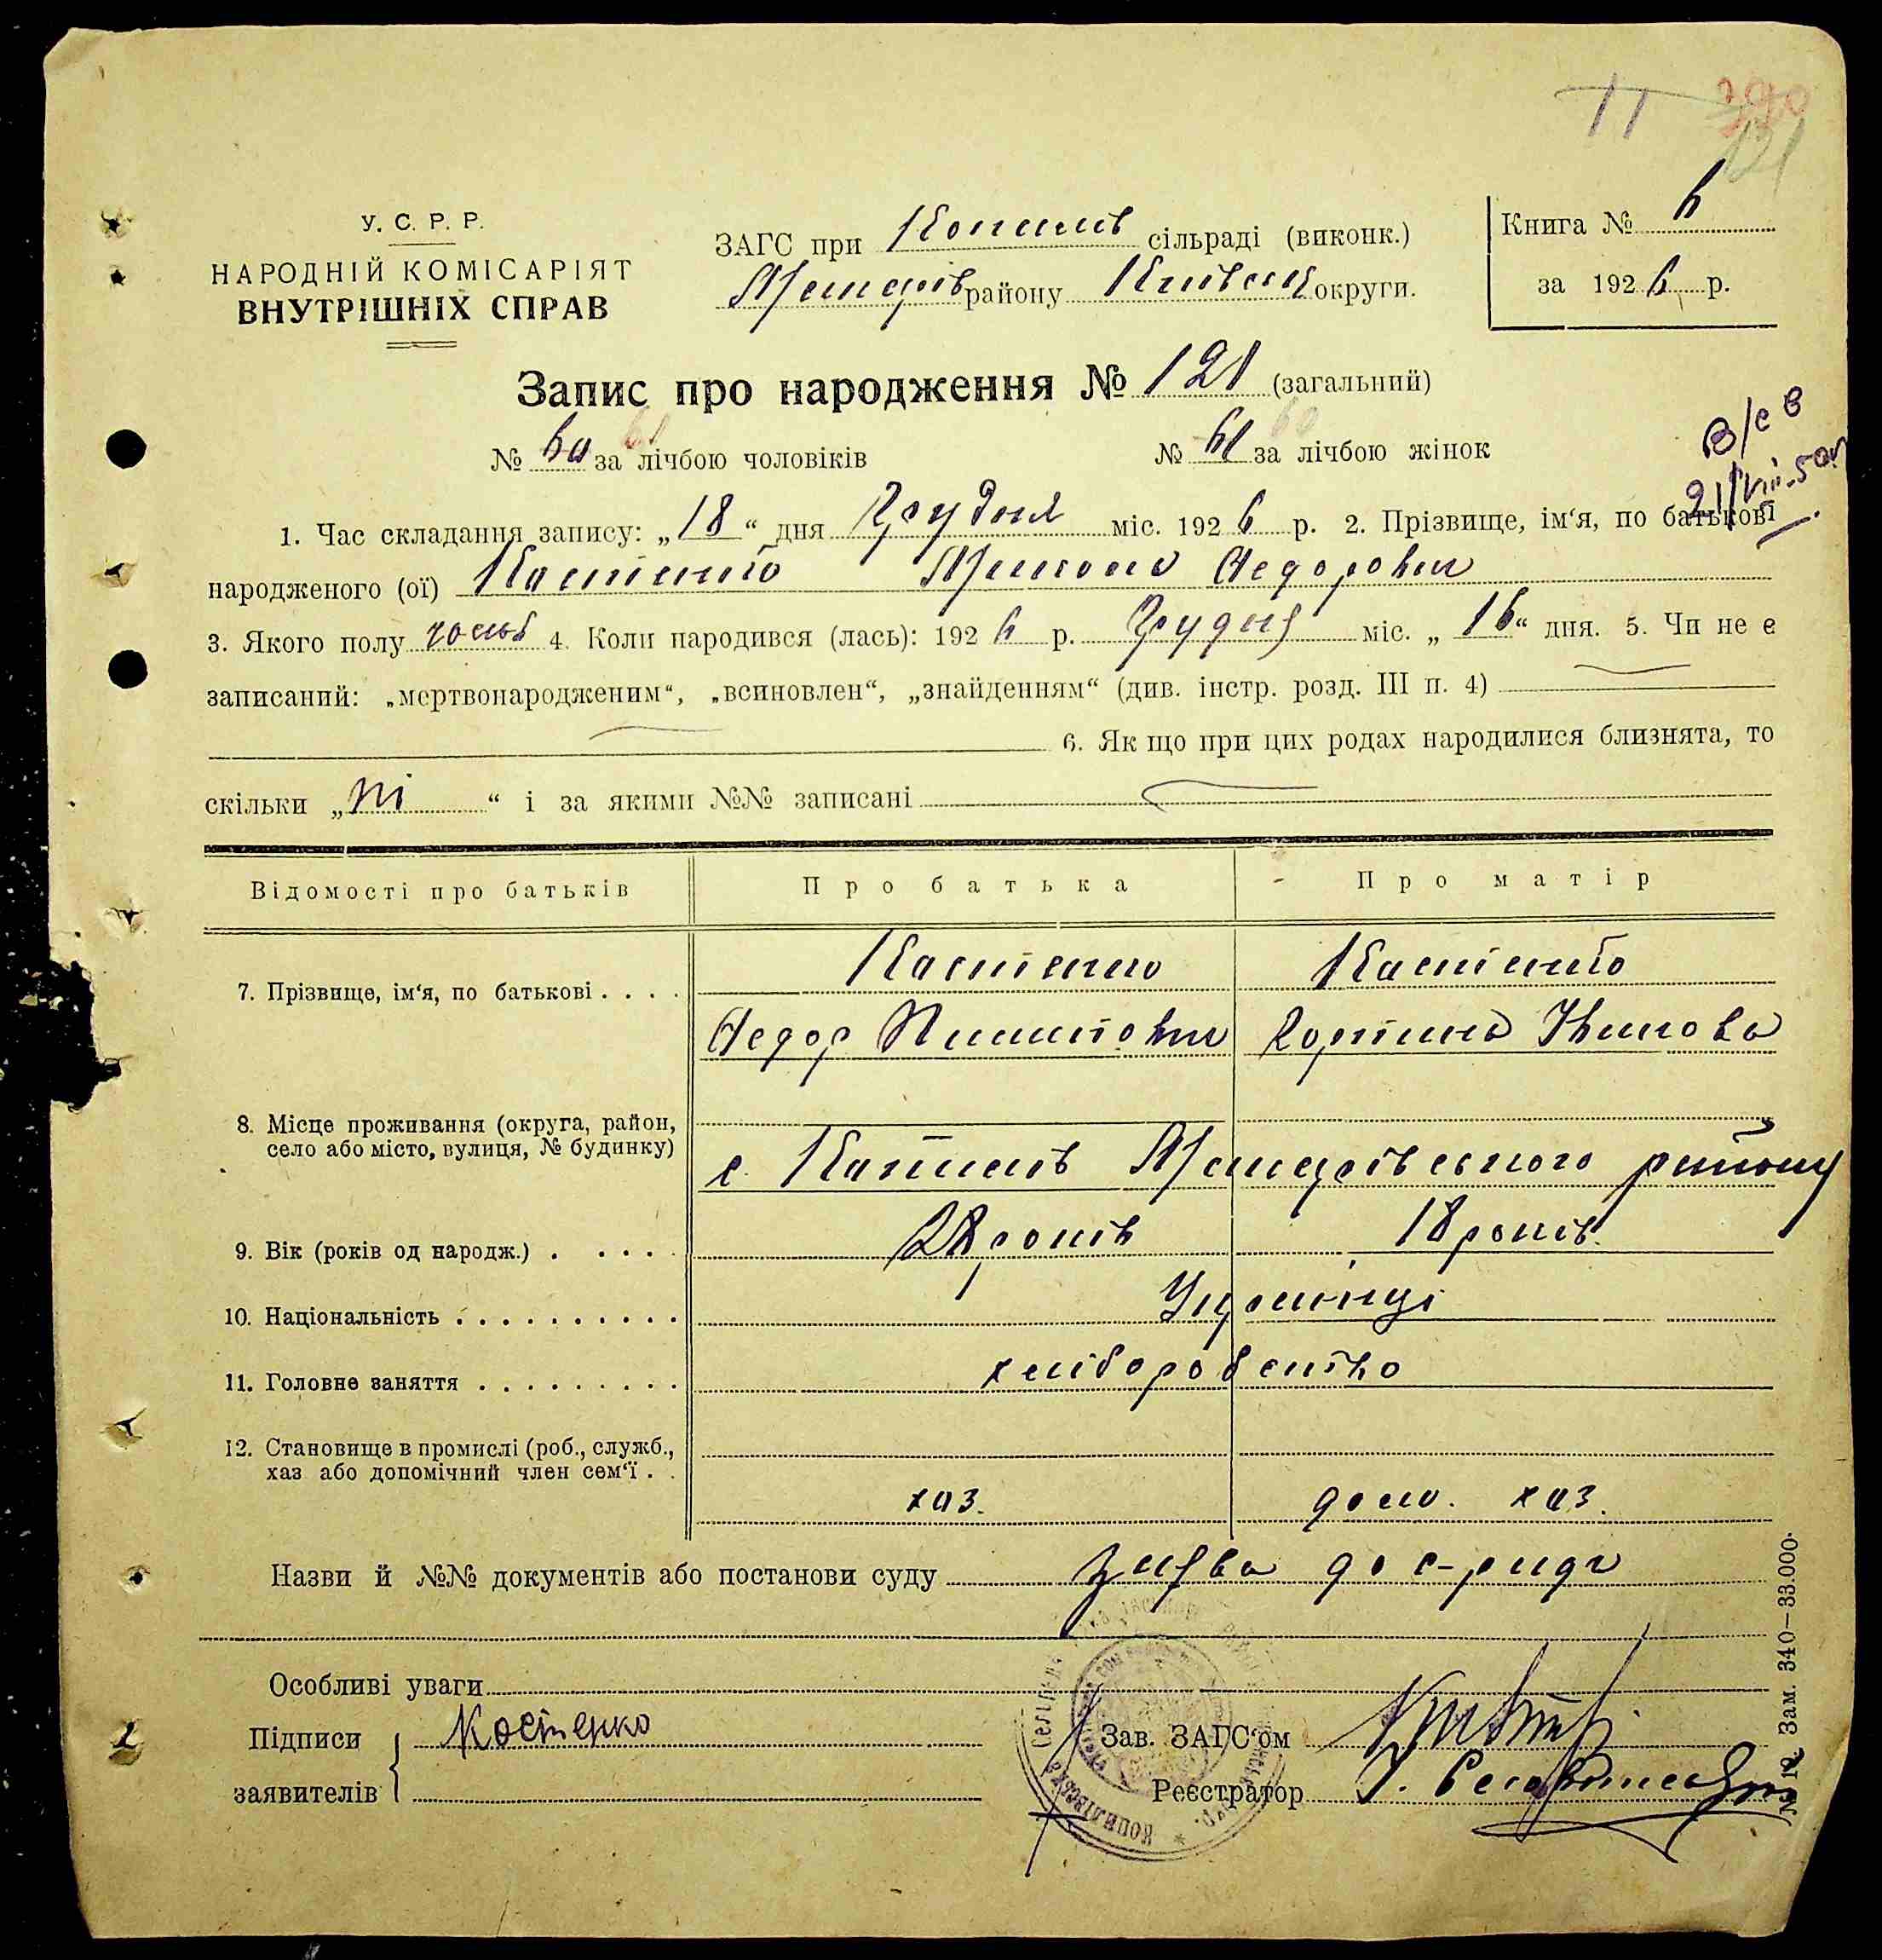 11 390
121
У. С. Р. Р.
НАРОДНІЙ КОМІСАРІЯТ
ВНУТРІШНІХ СПРАВ
ЗАГС при Копилів сільраді (виконк.)
Макарів району Київськ округи.
Книга № 6
за 1926 р.
Запис про народження № 121 (загальний)
№ 60 61 за лічбою чоловіків № 61 60 за лічбою жінок
1. Час складання запису: „18“ дня Грудня міс. 1926 р. 2. Прізвище, ім'я, по батькові
народженого (ої) Костенко Микола Федорович
3. Якого полу чолов 4. Коли народився (лась): 1926 р. Грудня міс. „16“ дня. 5. Чи не є
записаний: „мертвонародженим“, „всиновлен“, „знайденням“ (див. інстр. розд. III п. 4)
6. Як що при цих родах народилися близнята, то
скільки „ні“ і за якими №№ записані
Відомості про батьків Про батька Про матір
7. Прізвище, ім'я, по батькові . . . . Костенко Костенко
Федор Пилипович Горпина
8. Місце проживання (округа, район,
село або місто, вулиця, № будинку)
с. Копилів Макарівського району
9. Вік (років од народж.) . . . . . 28 років 18 років
10. Національність . . . . . . . . . . Українці
11. Головне заняття . . . . . . . . . хліборобство
12. Становище в промислі (роб., служб.,
хаз або допомічний член сем'ї . .
хаз. дом. хаз.
Назви й №№ документів або постанови суду заява до с-ради
Особливі уваги
Підписи Костенко Зав. ЗАГС'ом
заявителів Реєстратор
№ 12 Зам. 340—33.000.